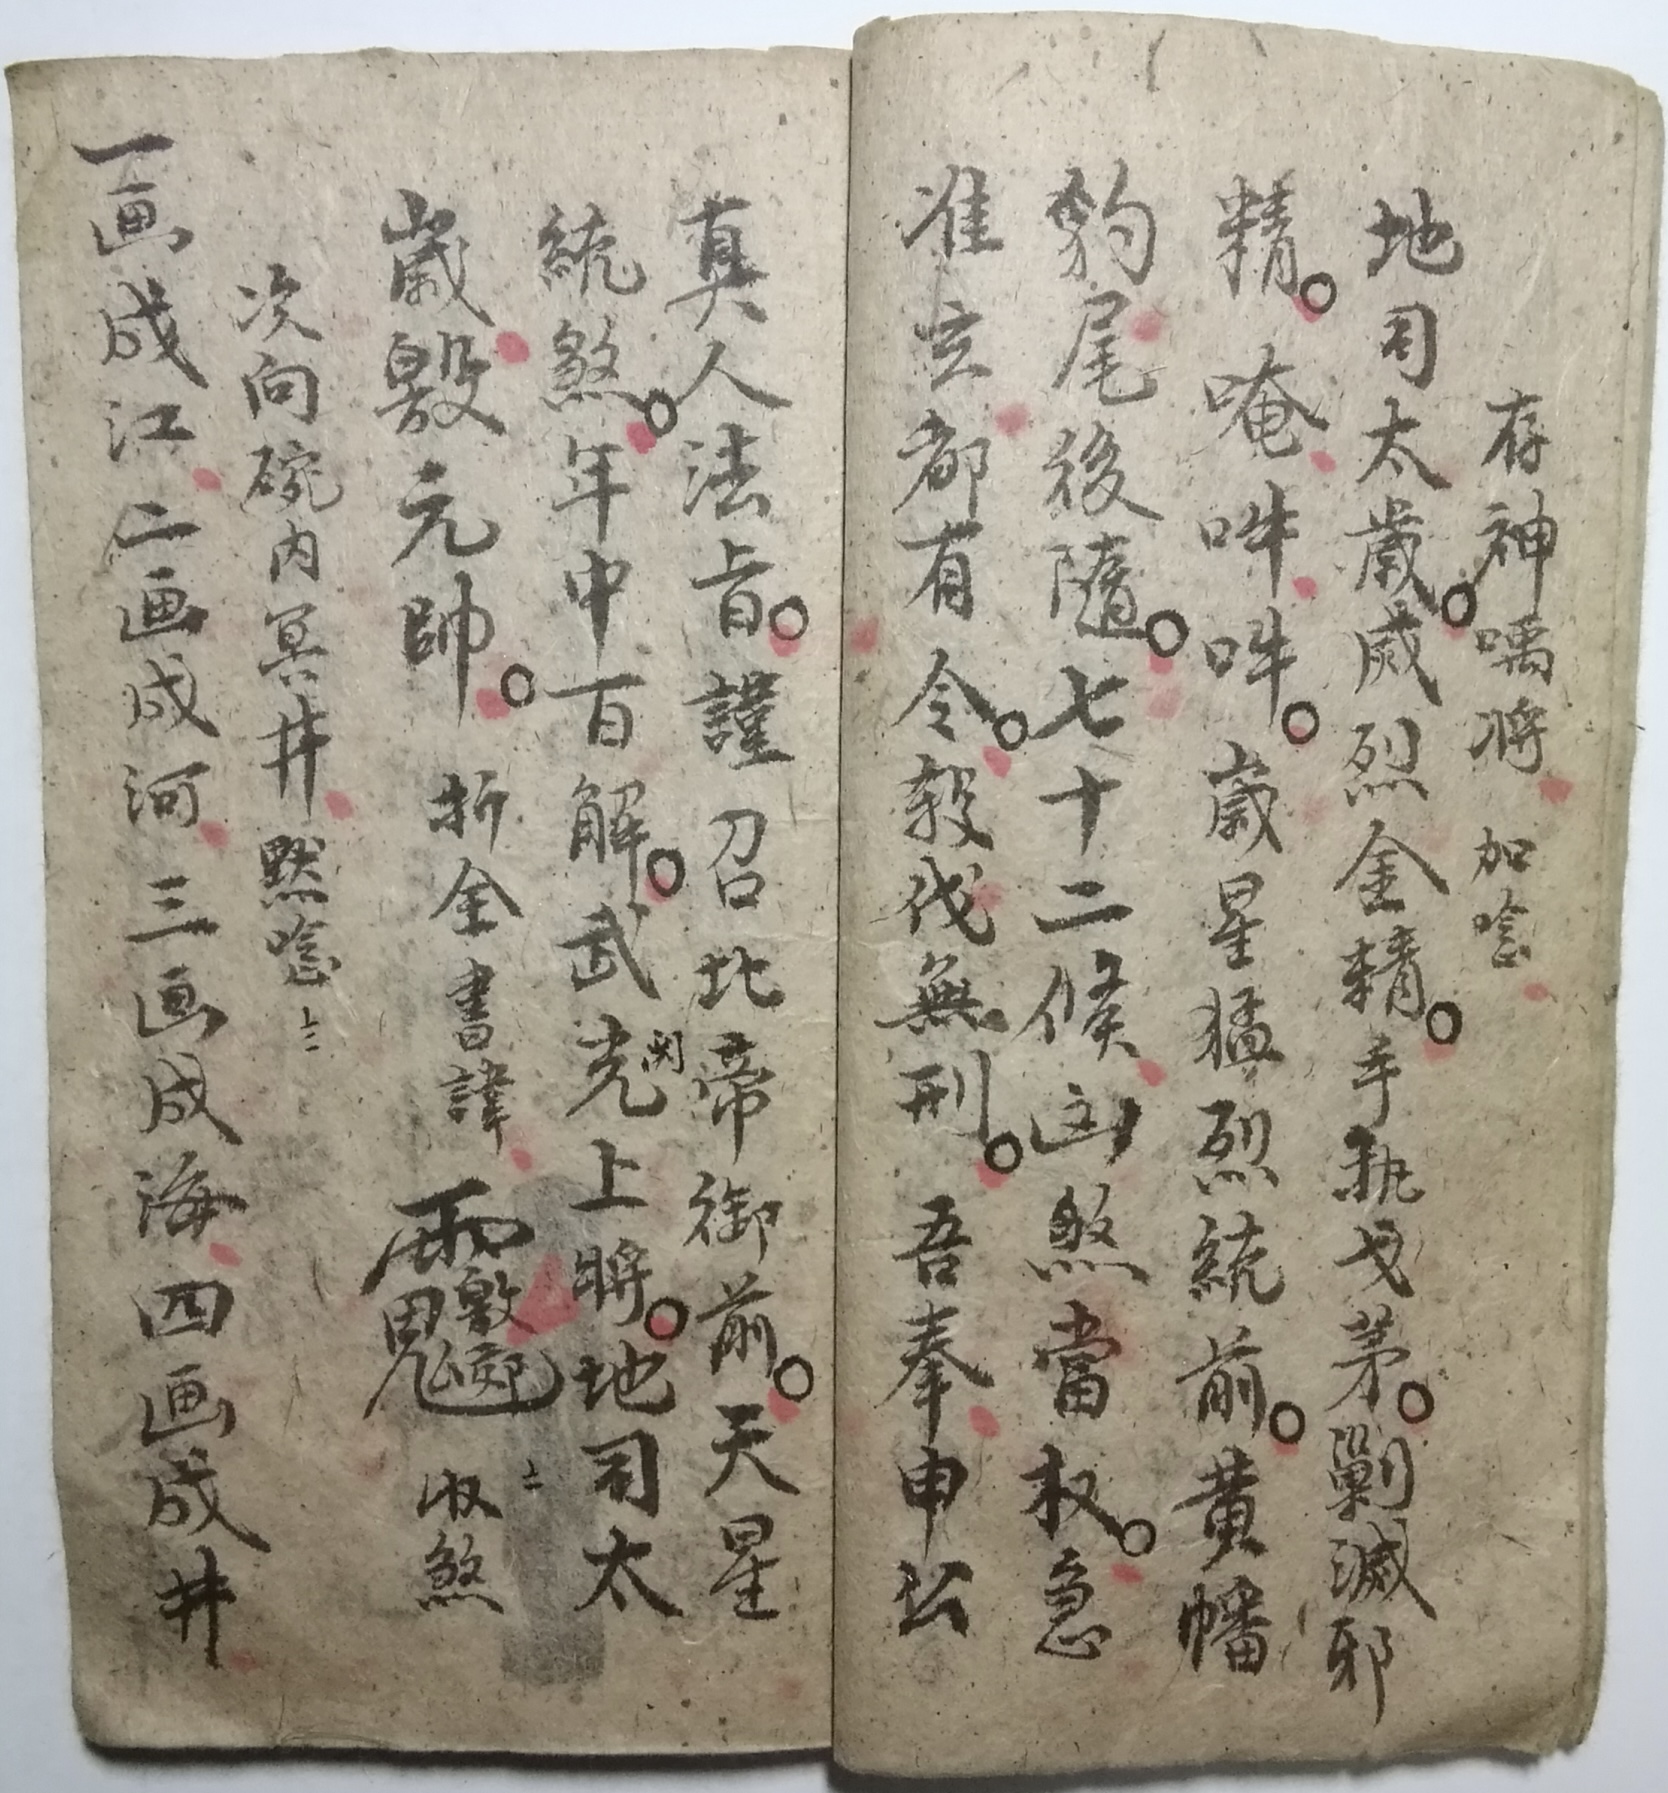 存神噀将 加唸
地司太歲。威烈金精。手執戈茅。剿滅邪
精。唵吽吽。歲星猛烈統前。黄幡
豹尾後隨。七十二候凶煞當权。急
准玄都有令。毅伐無刑。吾奉申公
真人法旨。謹召北帝御前。天星
統煞。年中百解。武光上將。地司太
歲殷元帥。 折全書諱 收煞
次向碗内冥井 黙唸
一画成江 二画成河 三画成海 四画成井